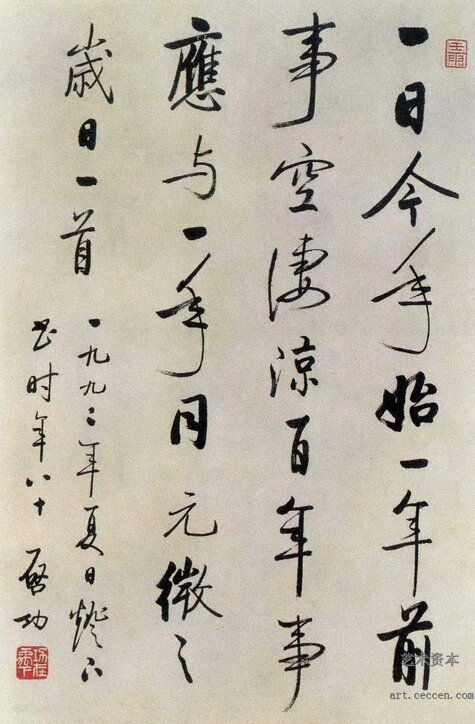 一日今年始一年前
事空淒涼百年事
應与一年同元微之
歲日一首
一九九二年夏日燈下
书时年八十 啓功
艺术资本
art.ceccen.com